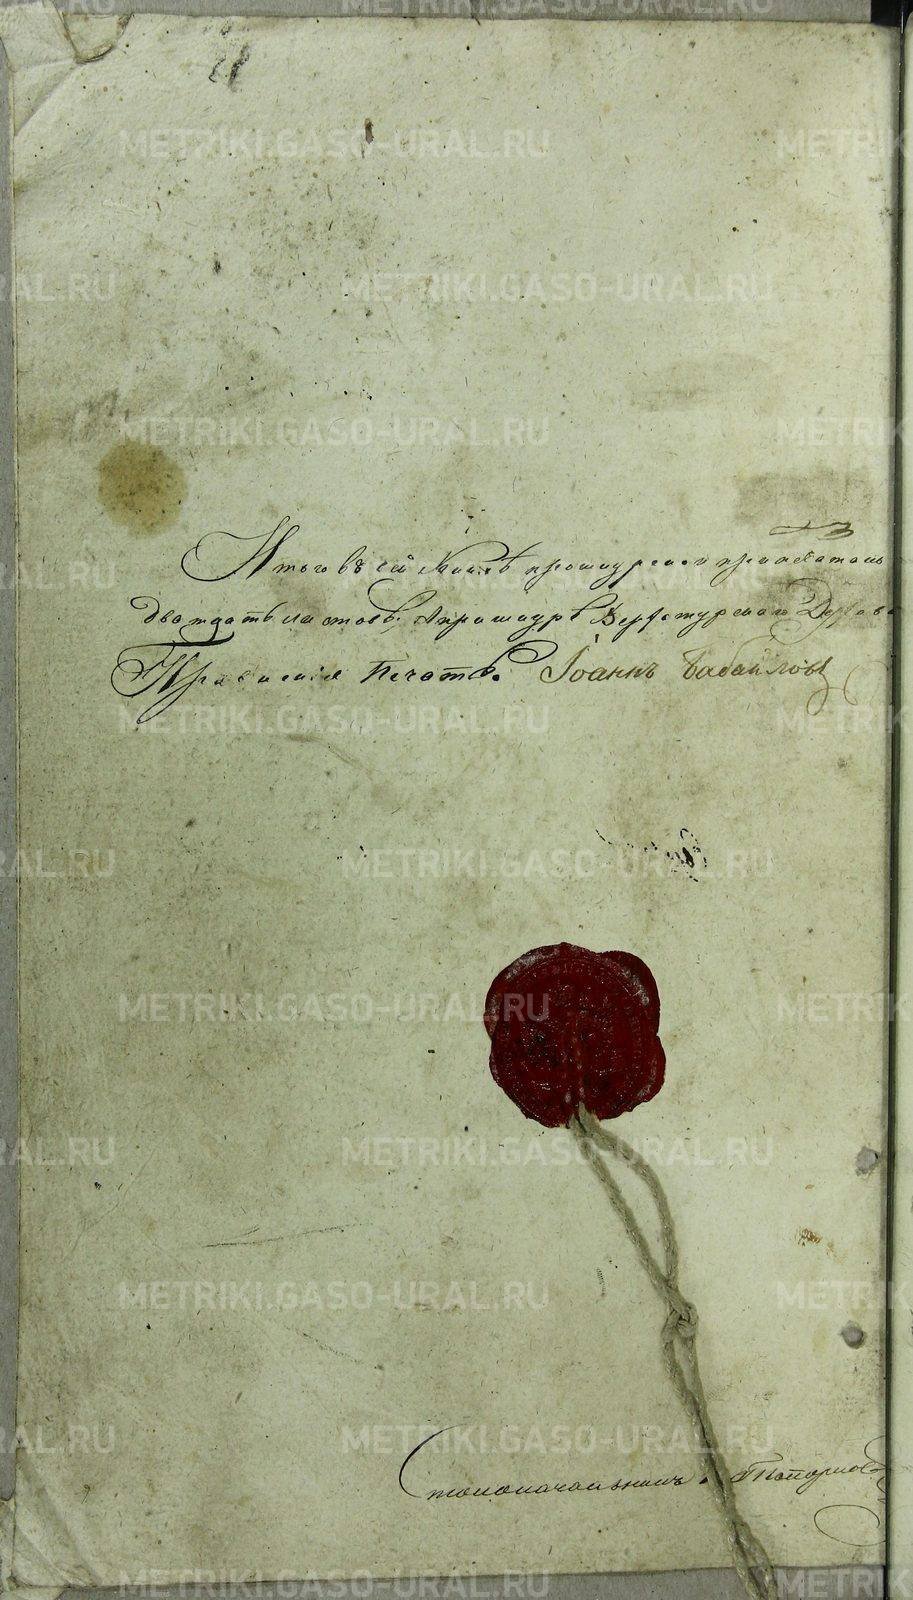 METRIKI.GASO-URAL.RU
Итого въ сей Книгѣ прошнурено и припечатано
двадцать листовъ, А при шнурѣ Верхотурскаго Духовн
Правленія Печать. Іоаннъ Бабайловъ
Столоначальникъ